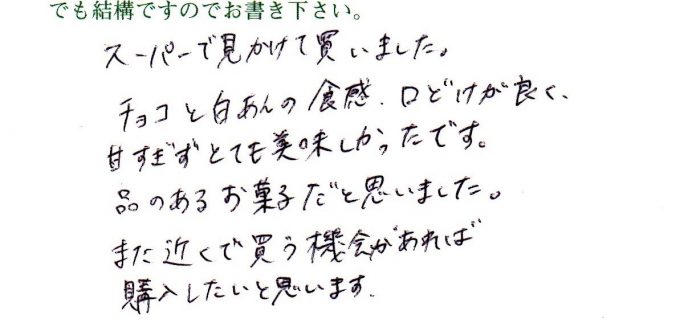 でも結構ですのでお書き下さい。
スーパーで見かけて買いました。
チョコと白あんの食感、口どけが良く、
甘すぎずとても美味しかったです。
品のあるお菓子だと思いました。
また近くで買う機会があれば
購入したいと思います.